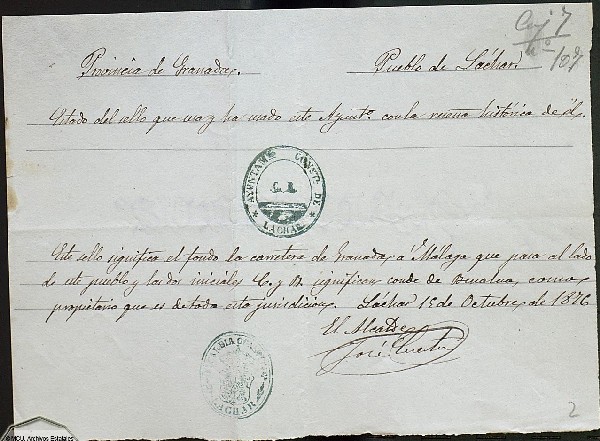 Caj 7
nº 107
Provincia de Granada. Pueblo de Láchar.
Estado del sello que usa y ha usado este Ayuntº. con la reseña histórica de él.
AYUNTAMº CONSTL. DE
* LACHAR *
Este sello significa el fondo la carretera de Granada á Málaga que pasa al lado
de este pueblo y las dos iniciales C. y B. significan conde de Benalua, como
propietario que es de toda esta jurisdiccion. Láchar 15 de Octubre de 1876
El Alcalde
José
LACHAR
2
© MCU. Archivos Estatales